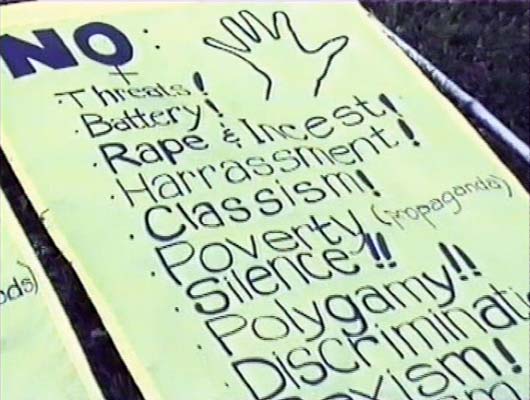 NO
·Threats!
·Battery!
·Rape & Incest!
·Harrassment!
·Classism!
·Poverty (Propaganda)
·Silence!!
·Polygamy!!
·Discriminati